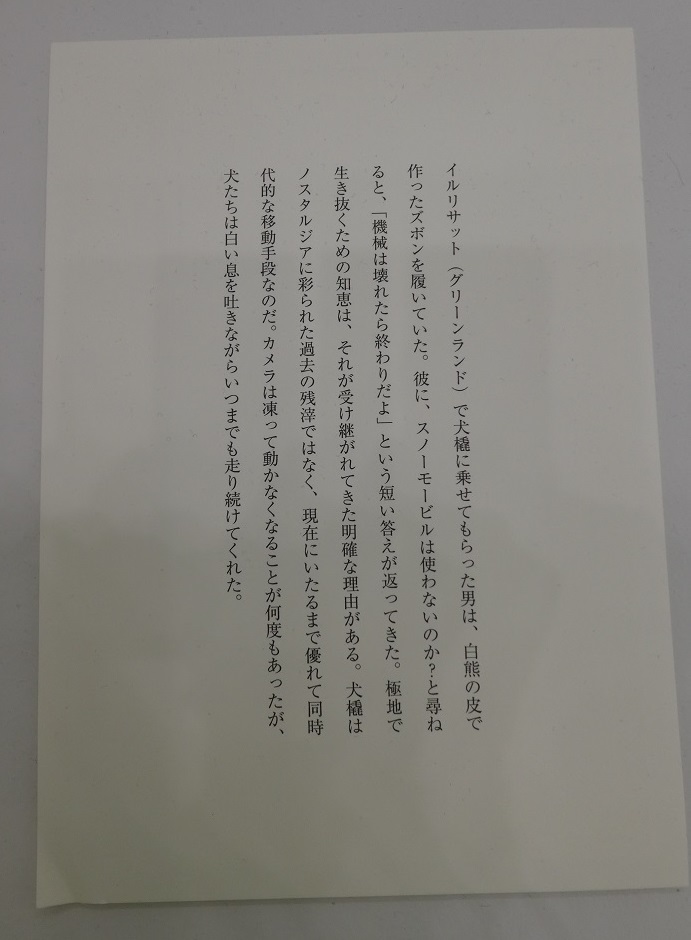 イルリサット（グリーンランド）で犬橇に乗せてもらった男は、白熊の皮で
作ったズボンを履いていた。彼に、スノーモービルは使わないのか？と尋ね
ると、「機械は壊れたら終わりだよ」という短い答えが返ってきた。極地で
生き抜くための知恵は、それが受け継がれてきた明確な理由がある。犬橇は
ノスタルジアに彩られた過去の残滓ではなく、現在にいたるまで優れて同時
代的な移動手段なのだ。カメラは凍って動かなくなることが何度もあったが、
犬たちは白い息を吐きながらいつまでも走り続けてくれた。